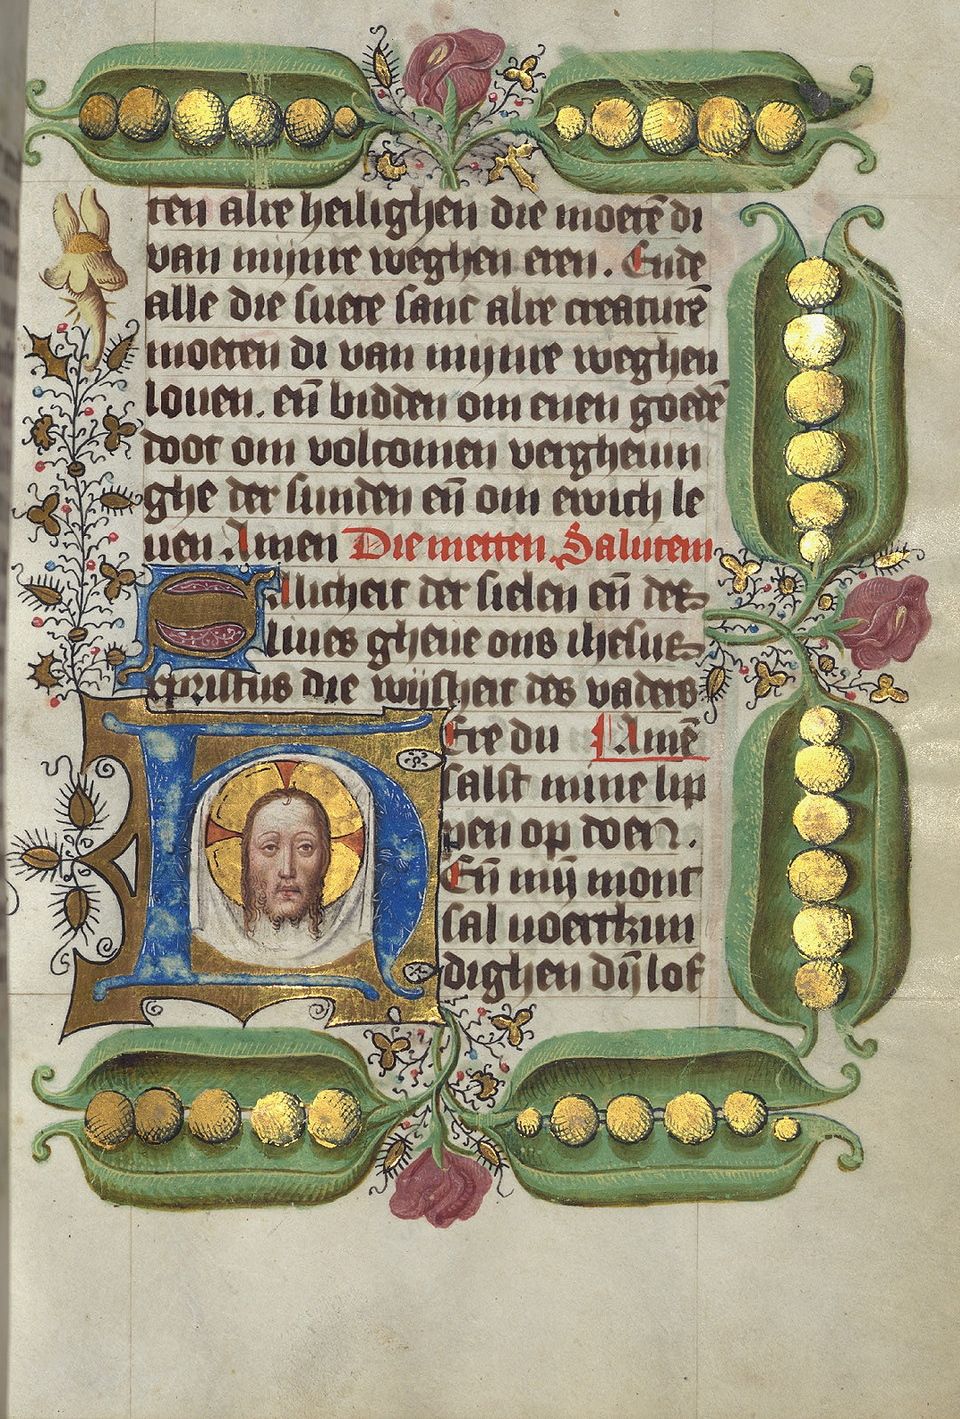 ten alre heilighen die moetē di
van mijnre weghen eren. Ende
alle die suete sanc alre creaturē
moeten di van mijnre weghen
louen. eñ bidden om enen goedē
doot om volcomen vergheuin
ghe der sunden eñ om ewich le
uen. Amen Die metten. Salutem
Salicheit der sielen eñ des
liues gheue ons ihesus
cpristus die wijsheit des vaders
Here du Amē
salst mine lip
pen op doen.
Eñ mijn mont
sal voert kun
dighen dijn lof